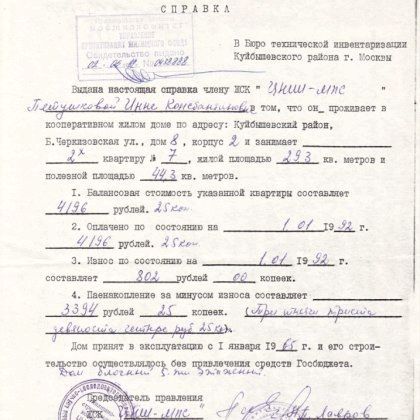 СПРАВКА
МОСТИЛКОМИТЕТ
УПРАВЛЕНИЕ
ПРИВАТИЗАЦИИ ЖИЛИЩНОГО ФОНДА
Свидетельство выдано
№
В Бюро технической инвентаризации
Куйбышевского района г. Москвы
Выдана настоящая справка члену ЖСК " ЦНИИ-МПС "
Петушковой Инне Константиновне в том, что он проживает в
кооперативном жилом доме по адресу: Куйбышевский район,
Б.Черкизовская ул., дом 8, корпус 2 и занимает
2х квартиру № 7, жилой площадью 29.3 кв. метров и
полезной площадью 44.3 кв. метров.
1. Балансовая стоимость указанной квартиры составляет
4196 рублей. 25 коп.
2. Оплачено по состоянию на 1.01 1992 г.
4196 рублей. 25 коп.
3. Износ по состоянию на 1.01 1992 г.
составляет 802 рублей 00 копеек.
4. Паенакопление за минусом износа составляет
3394 рублей 25 копеек. (Три тысячи триста
девяносто четыре руб 25 коп.)
Дом принят в эксплуатацию с 1 января 1965 г. и его строи-
тельство осуществлялось без привлечения средств Госбюджета.
Дом блочный 5-ти этажный.
Председатель правления
ЖСК "ЦНИИ-МПС" Лавров